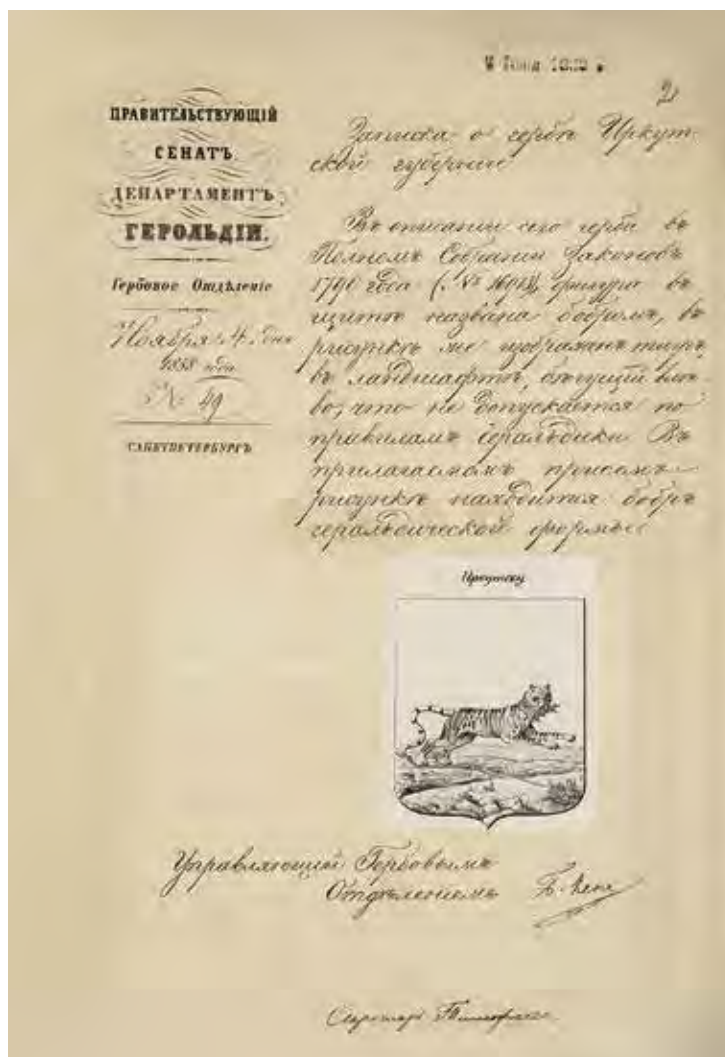 2
ПРАВИТЕЛЬСТВУЮЩІЙ
СЕНАТЪ.
ДЕПАРТАМЕНТЪ
ГЕРОЛЬДІИ.
Гербовое Отдѣленіе
Ноября 4 дня
1858 года
№ 49
САНКТПЕТЕРБУРГЪ
Записка о гербѣ Иркут-
ской губерніи
Въ описаніи сего герба въ
Полномъ Собраніи Законовъ
1790 года (№ ), фигура въ
щитѣ названа бобромъ, въ
рисункѣ же изображенъ тигръ,
въ ландшафтѣ, бѣгущій влѣ-
во, что не допускается по
правиламъ геральдики. Въ
прилагаемомъ при семъ
рисункѣ находится бобръ
геральдической формы.
Иркутску
Управляющій Гербовымъ
Отдѣленіемъ Б. Кене
Секретарь